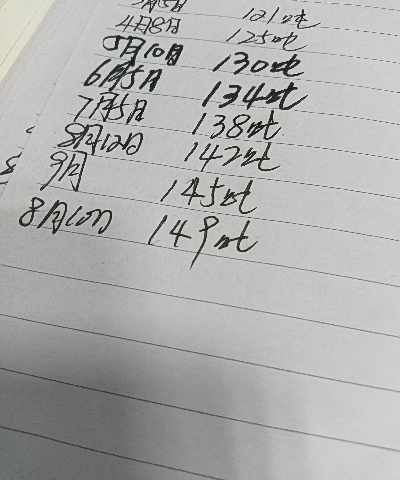 月15日 121吨
4月8日 125吨
5月10日 130吨
6月5日 134吨
7月5日 138吨
8月12日 142吨
9月 145吨
8月10日 149吨